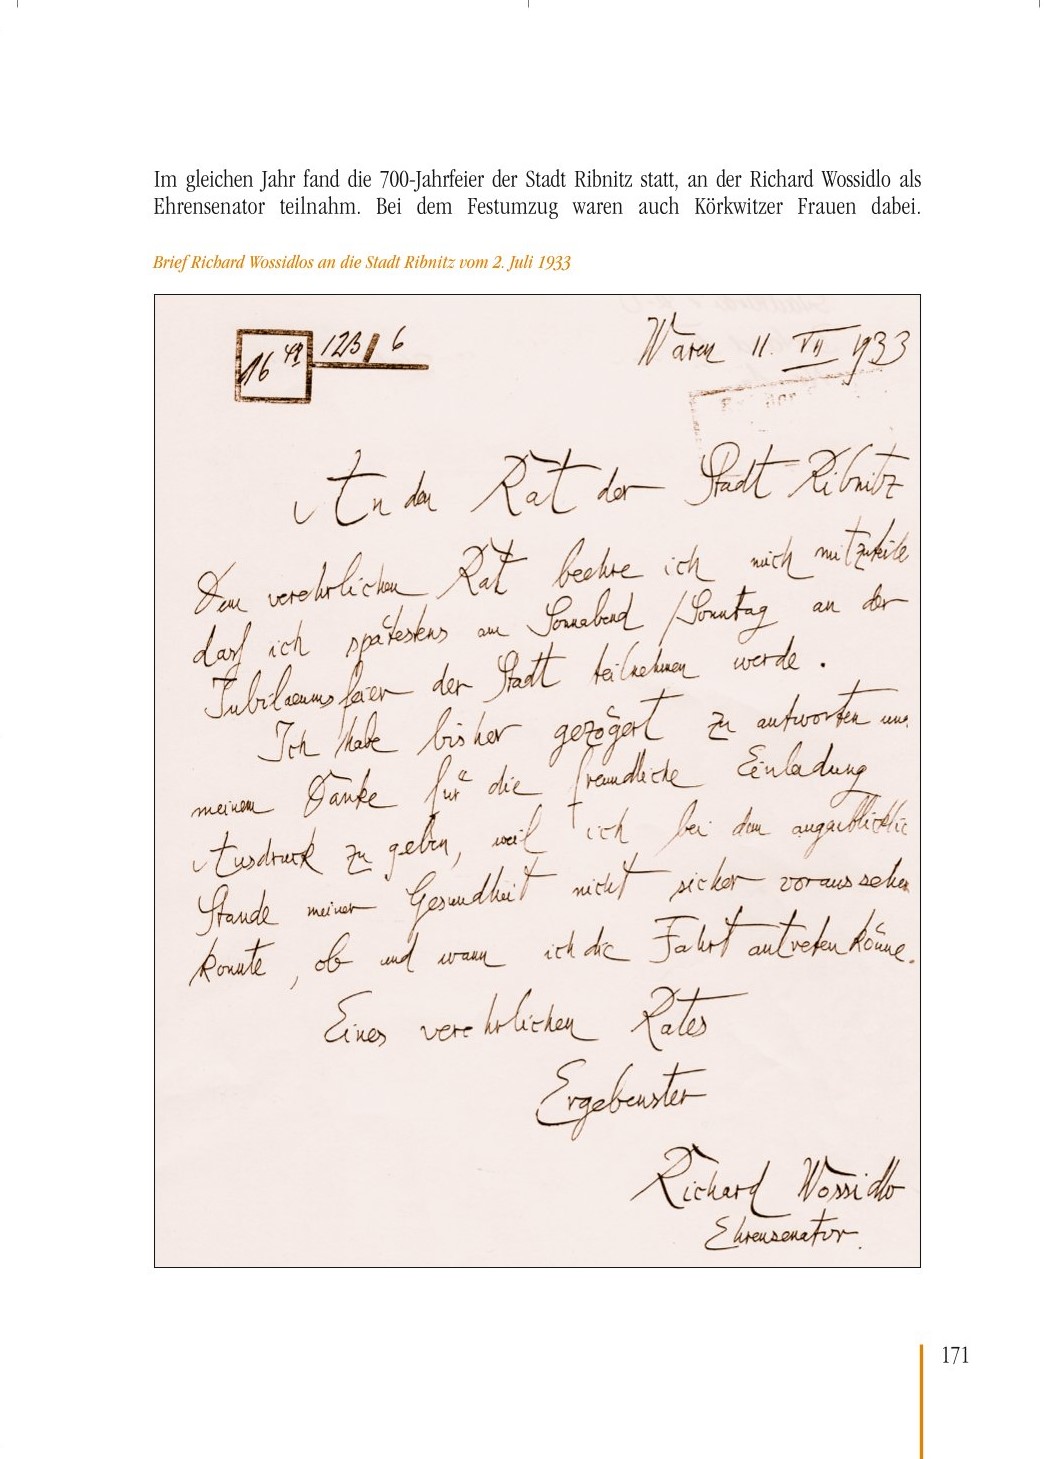 Im gleichen Jahr fand die 700-Jahrfeier der Stadt Ribnitz statt, an der Richard Wossidlo als
Ehrensenator teilnahm. Bei dem Festumzug waren auch Körkwitzer Frauen dabei.
Brief Richard Wossidlos an die Stadt Ribnitz vom 2. Juli 1933
16 49 123 / 6
Waren 11. VII 1933
An den Rat der Stadt Ribnitz
Dem verehrlichen Rat beehre ich mich mitzuteile
dass ich spätestens am Sonnabend / Sonntag an der
Jubilaeumsfeier der Stadt teilnehmen werde.
Ich habe bisher gezögert zu antworten und
meinem Danke für die freundliche Einladung
Ausdruck zu geben, weil ich bei dem augenblicklic
Stande meiner Gesundheit nicht sicher voraussehen
konnte, ob und wann ich die Fahrt antreten könne.
Eines verehrlichen Rates
Ergebenster
Richard Wossidlo
Ehrensenator.
171